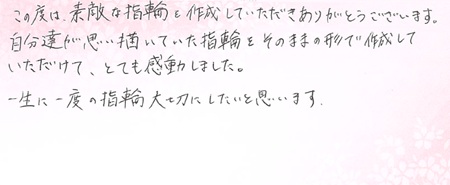 この度は、素敵な指輪を作成していただきありがとうございます。
自分達が思い描いていた指輪をそのままの形で作成して
いただけて、とても感動しました。
一生に一度の指輪大切にしたいと思います.